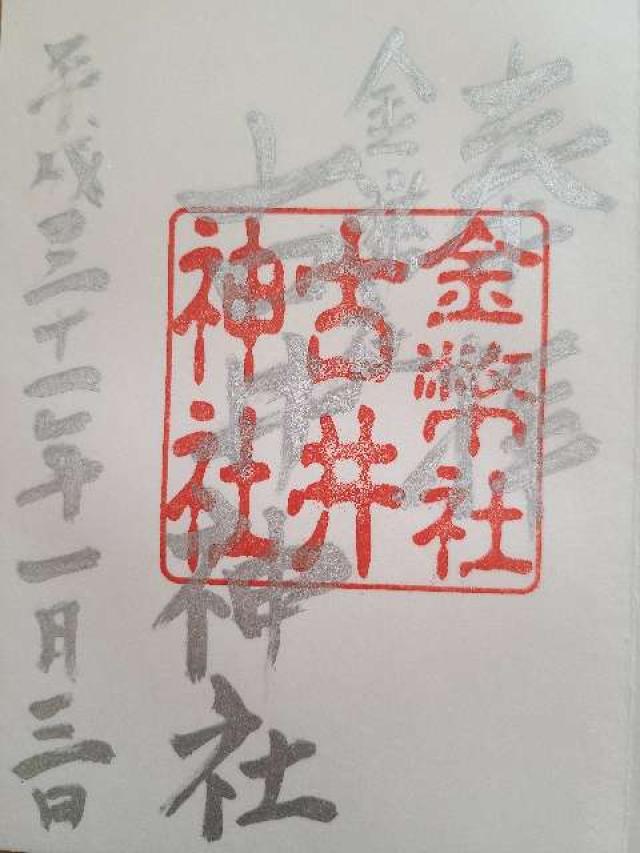 奉拝
金幣
古井神社
平成三十一年一月三日
金幣社
古井
神社